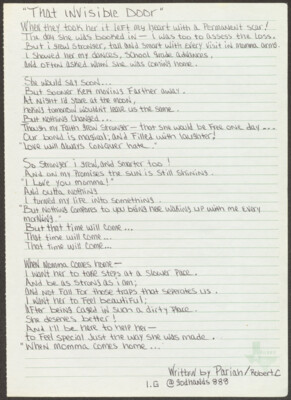 "That Invisible Door"
When they took her it left my heart with a permanent scar!
The day she was booked in - I was too to assess the loss.
But I grew stronger, tall and smart with every visit in mamma arms
I showed her my dances, school grade addidness,
And often asked when she was coming home.
She would say soon...
But sooner kept moving further away.
At night I'd stare at the moon,
hoping tomorrow wouldn't leave us the same.
But nothing changed...
Though my faith grew stronger - that she would be free one day....
Our bond is magical; and filled with laughter!
"Love will always conquer hate."
So stronger I grew, and smarter too!
And on my promises the sun is still shining.
"I love you momma!"
And outta nothing
I turned my life into something.
"But nothing compares to you being here waking up with me every
morning."
But that time will come...
That time will come...
That time will come...
When momma comes home -
I want her to take steps at a slower pace.
And be as strong as I am;
and not fall for those traps that seperates us.
I want her to feel beautiful;
After being caged in such a dirty place.
She deserves better!
And I'll be here to help her -
to feel special just the way she was made..
"When momma comes home...
Written by Pariah/Robert.C
I.G @Godhands888